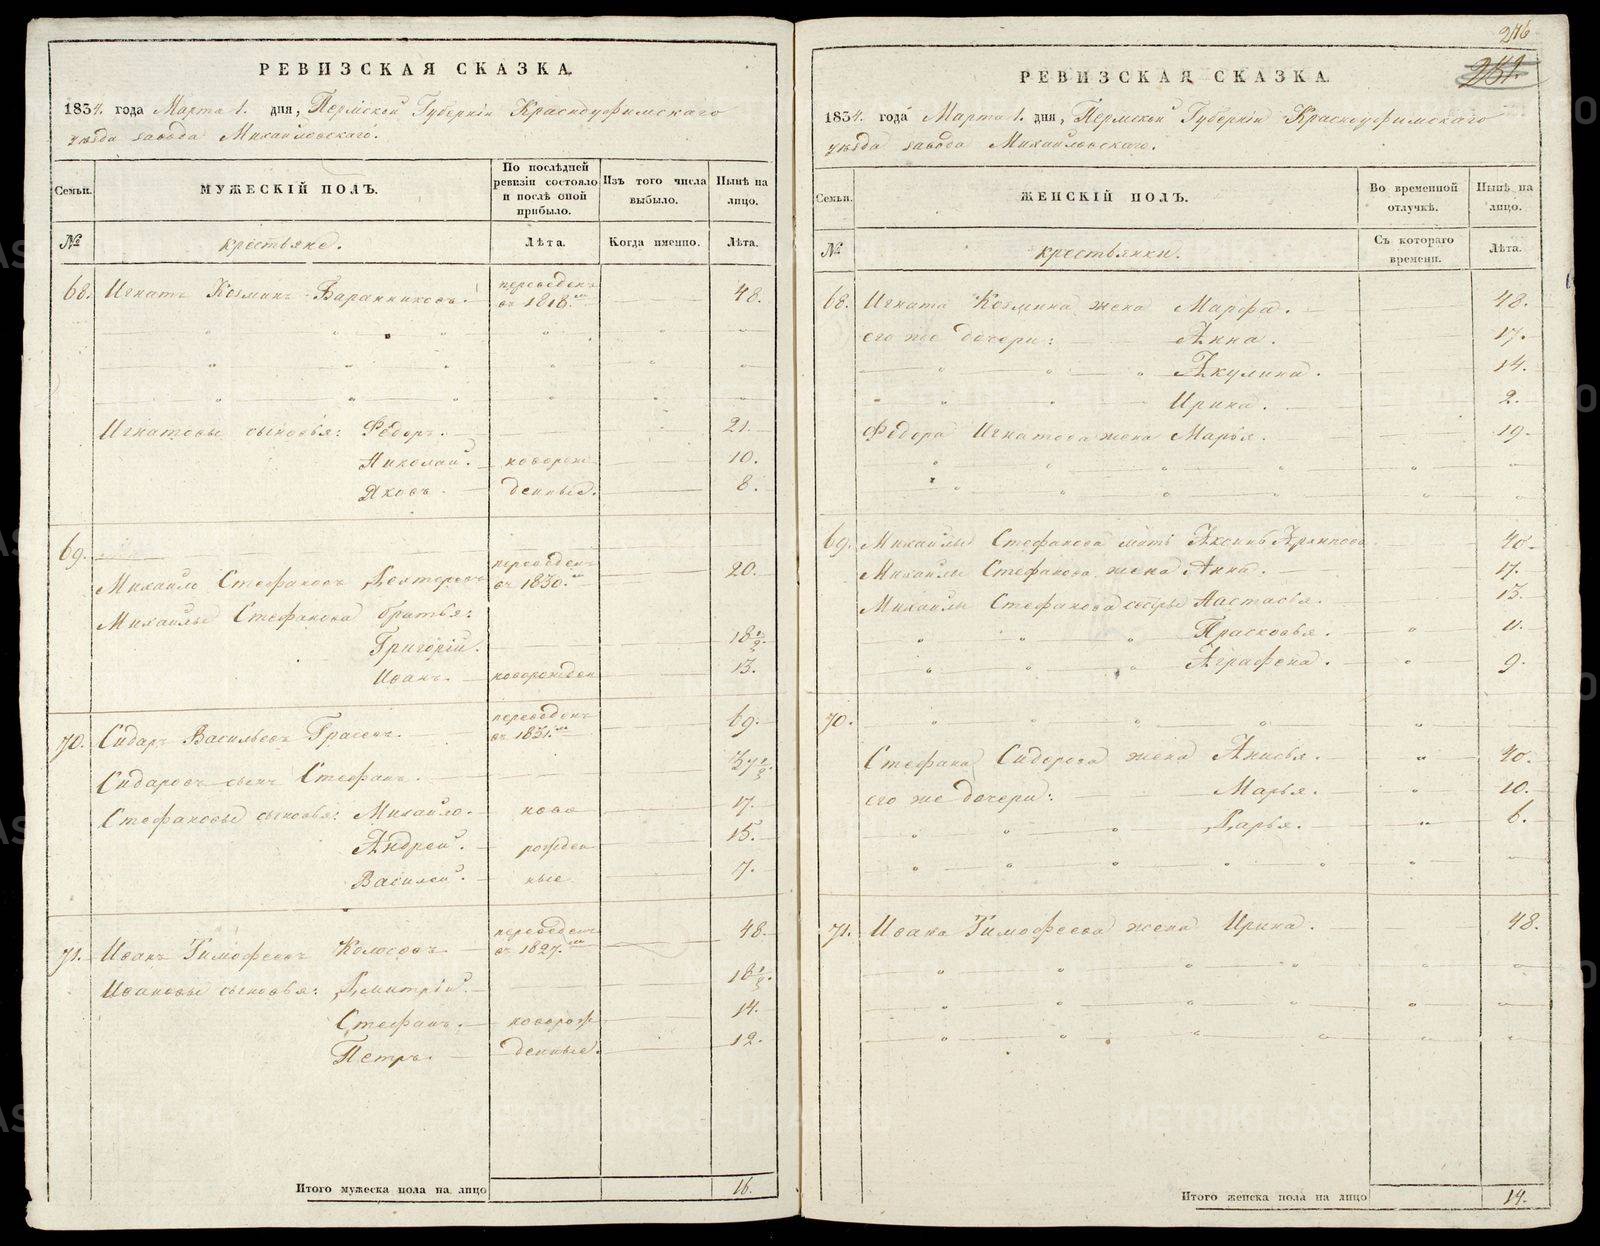 РЕВИЗСКАЯ СКАЗКА.
1834. года Марта 1. дня, Пермской Губерніи Красноуфимскаго
уѣзда завода Михайловскаго.
Семьи. МУЖЕСКІЙ ПОЛЪ. По послѣдней ревизіи состояло и послѣ оной прибыло. Изъ того числа выбыло. Нынѣ на лицо.
№ крестьяне. Лѣта. Когда именно. Лѣта.
68. Игнатъ Козминъ Баранниковъ. переведенъ въ 1818.мъ 48.
Игнатовы сыновья: Федоръ. 21.
Николай. новорож 10.
Яковъ. денные. 8.
69.
Михайло Стефановъ переведенъ въ 1830.мъ 20.
Михайлы Стефанова братья:
Григорій. 18½.
Иванъ. новорожден 13.
70. Сидоръ Васильевъ переведенъ въ 1831.мъ 69.
Сидоровъ сынъ Стефанъ. 37½.
Стефановы сыновья: Михайло. ново 17.
Андрей. рожден 15.
Василей. ные 7.
71. Иванъ Тимофеевъ Колосовъ переведенъ въ 1827.мъ 48.
Ивановы сыновья: Дмитрій. 18½.
Стефанъ. новорож 14.
Петръ. денные. 12.
Итого мужеска пола на лицо 16.
246
251.
РЕВИЗСКАЯ СКАЗКА.
1834. года Марта 1. дня, Пермской Губерніи Красноуфимскаго
уѣзда завода Михайловскаго.
Семьи. ЖЕНСКІЙ ПОЛЪ. Во временной отлучкѣ. Нынѣ на лицо.
№ крестьянки. Съ котораго времени. Лѣта.
68. Игната Козмина жена Марфа. 48.
его же дочери: Анна. 17.
Акулина. 14.
Ирина. 2.
Федора Игнатова жена Марья. 19.
69. Михайлы Стефанова мать Аксинья Архипова 40.
Михайлы Стефанова жена Анна. 17.
Михайлы Стефанова сестры Настасья. 13.
Прасковья. 11.
Аграфена. 9.
70.
Стефана Сидорова жена Анисья. 40.
его же дочери: Марья. 10.
Дарья. 6.
71. Ивана Тимофеева жена Ирина. 48.
Итого женска пола на лицо 14.
METRIKI.GASO-URAL.RU